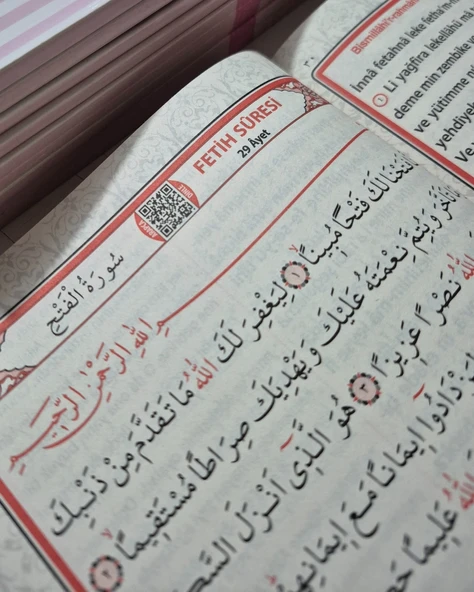 FETİH SÛRESİ
29 Âyet
DİNLE
سُورَةُ الْفَتْحِ
اللّٰهِ الرَّحْمٰنِ الرَّحِيمِ
فَتَحْنَا لَكَ فَتْحًا مُبِينًا ١ لِيَغْفِرَ لَكَ اللّٰهُ مَا تَقَدَّمَ مِنْ ذَنْبِكَ
تَاَخَّرَ وَيُتِمَّ نِعْمَتَهُ عَلَيْكَ وَيَهْدِيَكَ صِرَاطًا مُسْتَقِيمًا ٢
اللّٰهُ نَصْرًا عَزِيزًا ٣ هُوَ الَّذٓي اَنْزَلَ
لِيَزْدَادُٓوا ا۪يمَانًا مَعَ ا۪يمَانِهِمْ
اللّٰهُ عَلِيمًا
Bismillâhi'r-rahmâni
İnnâ fetahnâ leke fethâ m
① Li yağfira lekellâhü mâ
deme min zembike
ve yütimme
yehdiye
Ve